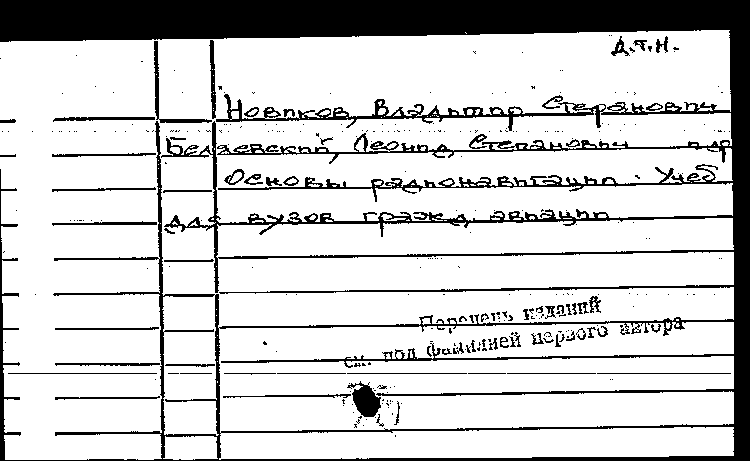 д.т.н.
Новиков, Владимир Степанович
Белявский, Леонид Степанович и др
Основы радионавигации. Учеб
для вузов гражд. авиации.
Перечень изданий
см. под фамилией первого автора